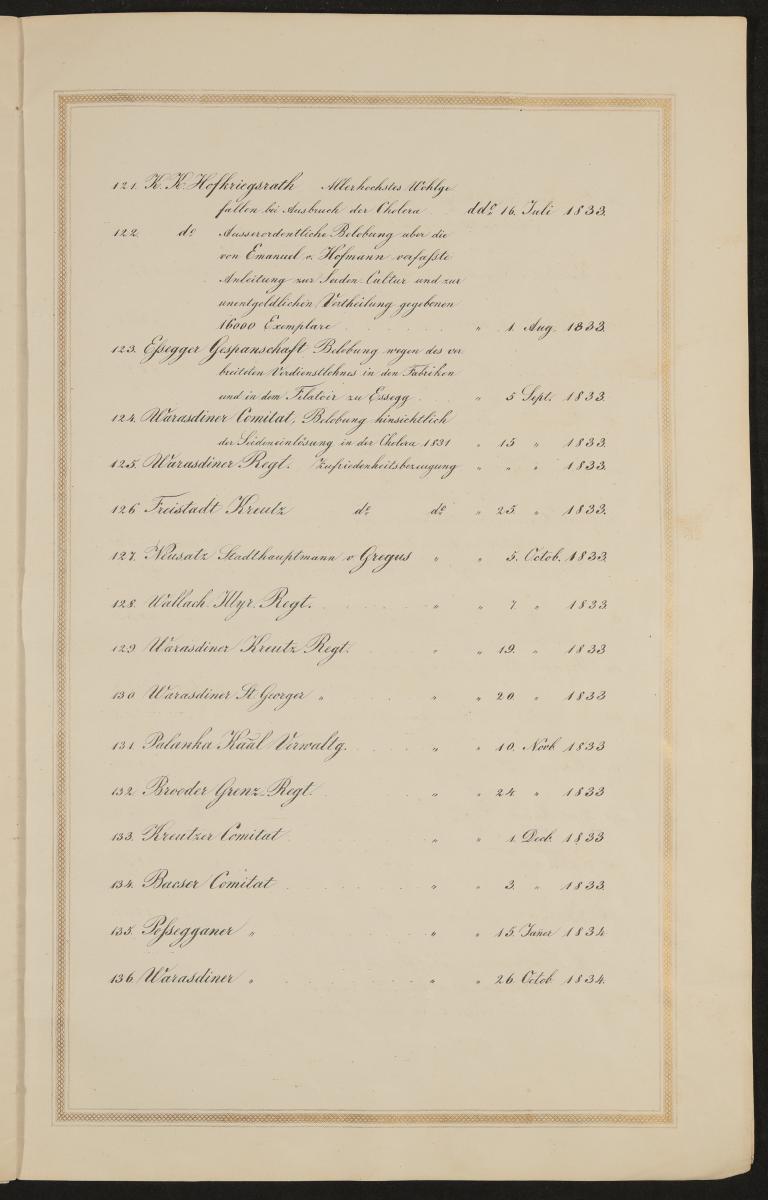 121. K. K. Hofkriegsrath Allerhöchstes Wohlge
fallen bei Ausbruch der Cholera ddo 16. Juli 1833.
122. do Ausserordentliche Belobung uber die
von Emanuel v. Hofmann verfaßte
Anleitung zur Seiden-Cultur und zur
unentgeldlichen Vertheilung gegebenen
16000 Exemplare " 1. Aug. 1833.
123. Eßegger Gespanschaft Belobung wegen des ver
breiteten Verdienstlohnes in den Fabriken
und in dem Filatoir zu Essegg " 5 Sept. 1833.
124. Warasdiner Comitat, Belobung hinsichtlich
der Seideneinlösung in der Cholera 1831 " 15 " 1833.
125. Warasdiner Regt. Zufriedenheitsbezeugung " " " 1833.
126 Freistadt Kreutz do do " 25. " 1833.
127. Neusatz Stadthauptmann v. Gregus " " 5. Octob. 1833.
128. Wallach. Illyr. Regt. " " 7. " 1833
129 Warasdiner Kreutz Regt. " " 19. " 1833
130. Warasdiner St. Georger " " " 20. " 1833
131. Palanka Kaal Verwaltg. " " 10. Novb 1833
132. Brooder Grenz-Regt. " " 24 " 1833
133. Kreutzer Comitat " " 1. Decb. 1833
134. Bacser Comitat " " 3. " 1833.
135. Poßegganer " " " 15. Janer 1834
136. Warasdiner " " " 26. Octob 1834.